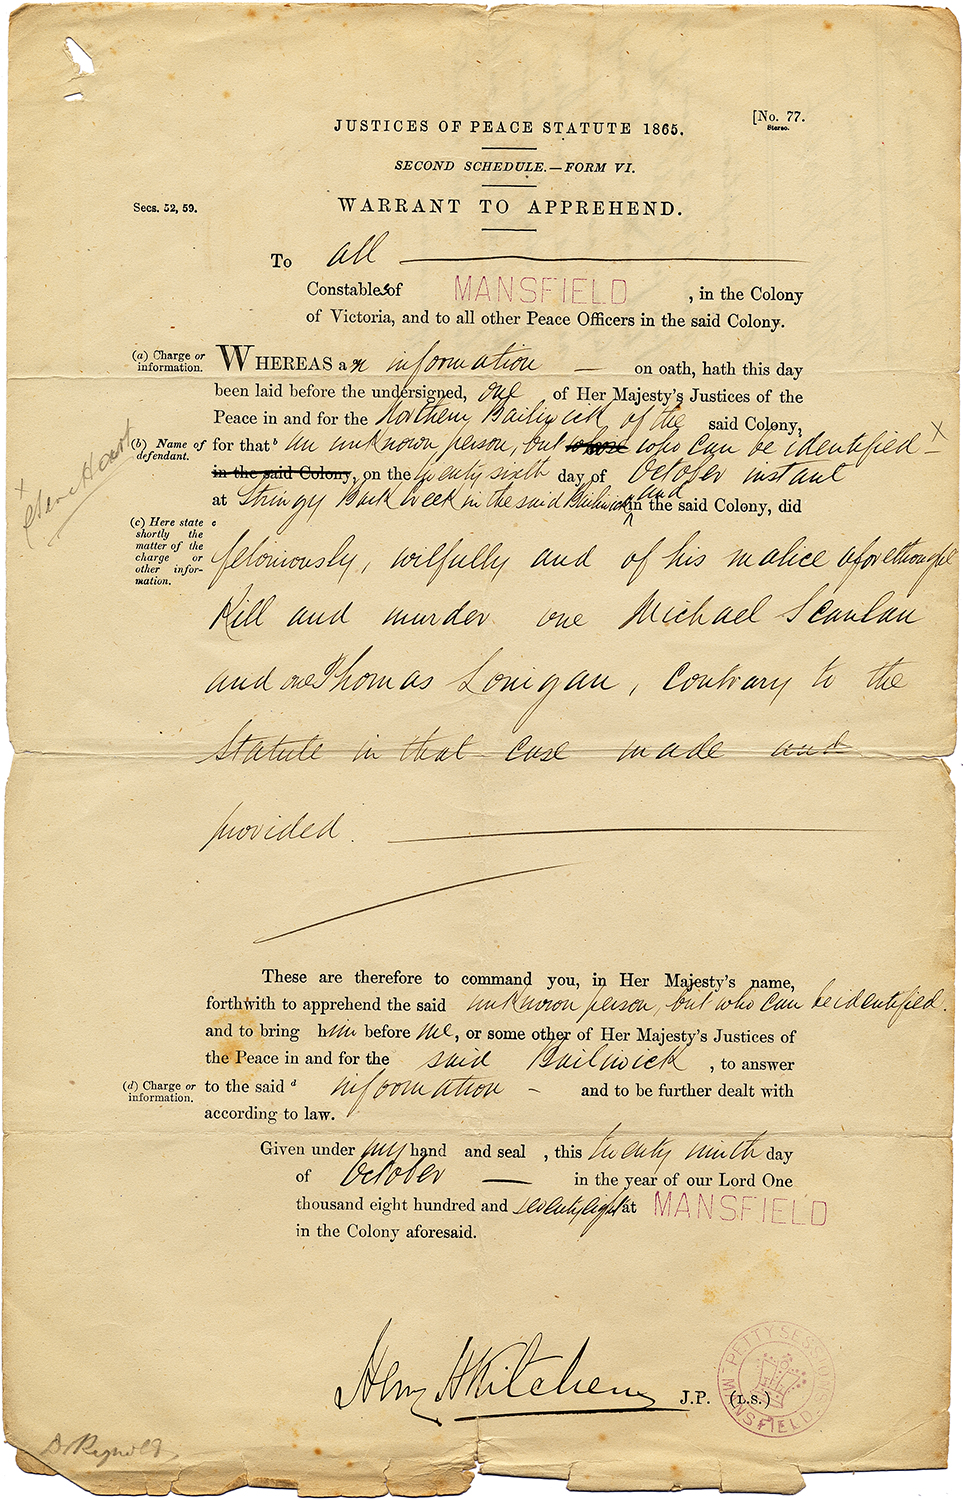 [No. 77.
Stereo.
JUSTICES OF PEACE STATUTE 1865.
SECOND SCHEDULE.—FORM VI.
Secs. 52, 59.
WARRANT TO APPREHEND.
To all
Constables of MANSFIELD, in the Colony
of Victoria, and to all other Peace Officers in the said Colony.
(a) Charge or information.
WHEREAS an information — on oath, hath this day
been laid before the undersigned, one of Her Majesty's Justices of the
Peace in and for the Northern Bailiwick of the said Colony,
(b) Name of defendant.
for that b an unknown person, but whose who can be identified — X
in the said Colony, on the twenty sixth day of October instant
at Stringy Bark Creek in the said Bailiwick and in the said Colony, did
X
Steve Hart
(c) Here state shortly the matter of the charge or other information.
c
feloniously, wilfully and of his malice aforethought
Kill and murder one Michael Scanlan
and one Thomas Lonigan, contrary to the
statute in that case made and
provided.
These are therefore to command you, in Her Majesty's name,
forthwith to apprehend the said unknown person, but who can be identified.
and to bring him before me, or some other of Her Majesty's Justices of
the Peace in and for the said Bailiwick, to answer
(d) Charge or information.
to the said d information — and to be further dealt with
according to law.
Given under my hand and seal, this twenty ninth day
of October — in the year of our Lord One
thousand eight hundred and seventy eight at MANSFIELD
in the Colony aforesaid.
Henry H Kitchen J.P. (L.S.)
PETTY SESSIONS
MANSFIELD